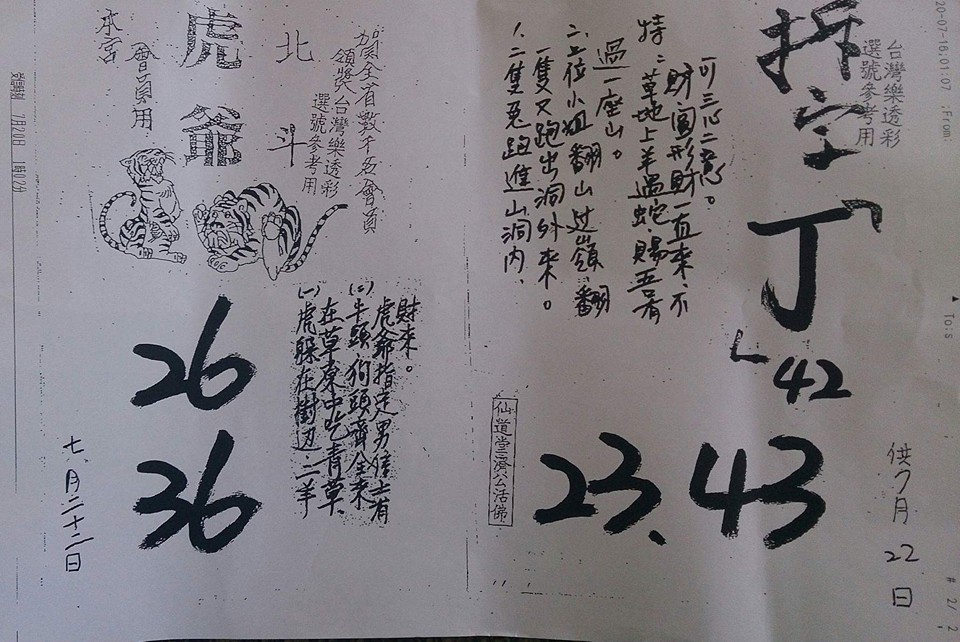 20-07-16,01:07 :From:
To:5
# 2/ 2
台灣樂透彩
選號參考用
拆字
丁
42
43
23、
供7月22日
特:
可三心二意。
財富形財一直來、不
草地上羊過蛇、賜五路
過一座山。
二、上位小姐翻山过嶺、翻
一隻又跑出洞外來。
1、二隻兎跑進山洞內、
仙道堂濟公活佛
賀全省數千名會員
領獎台灣樂透彩
選號參考用
北斗
虎爺
會員用
本宮
財來。
虎爺指定男信士有
(二)牛頭、狗頭齊全來
在草東中吃青草、
(一)虎躲在樹边、二羊
26
36
七、月二十二日
7月20日